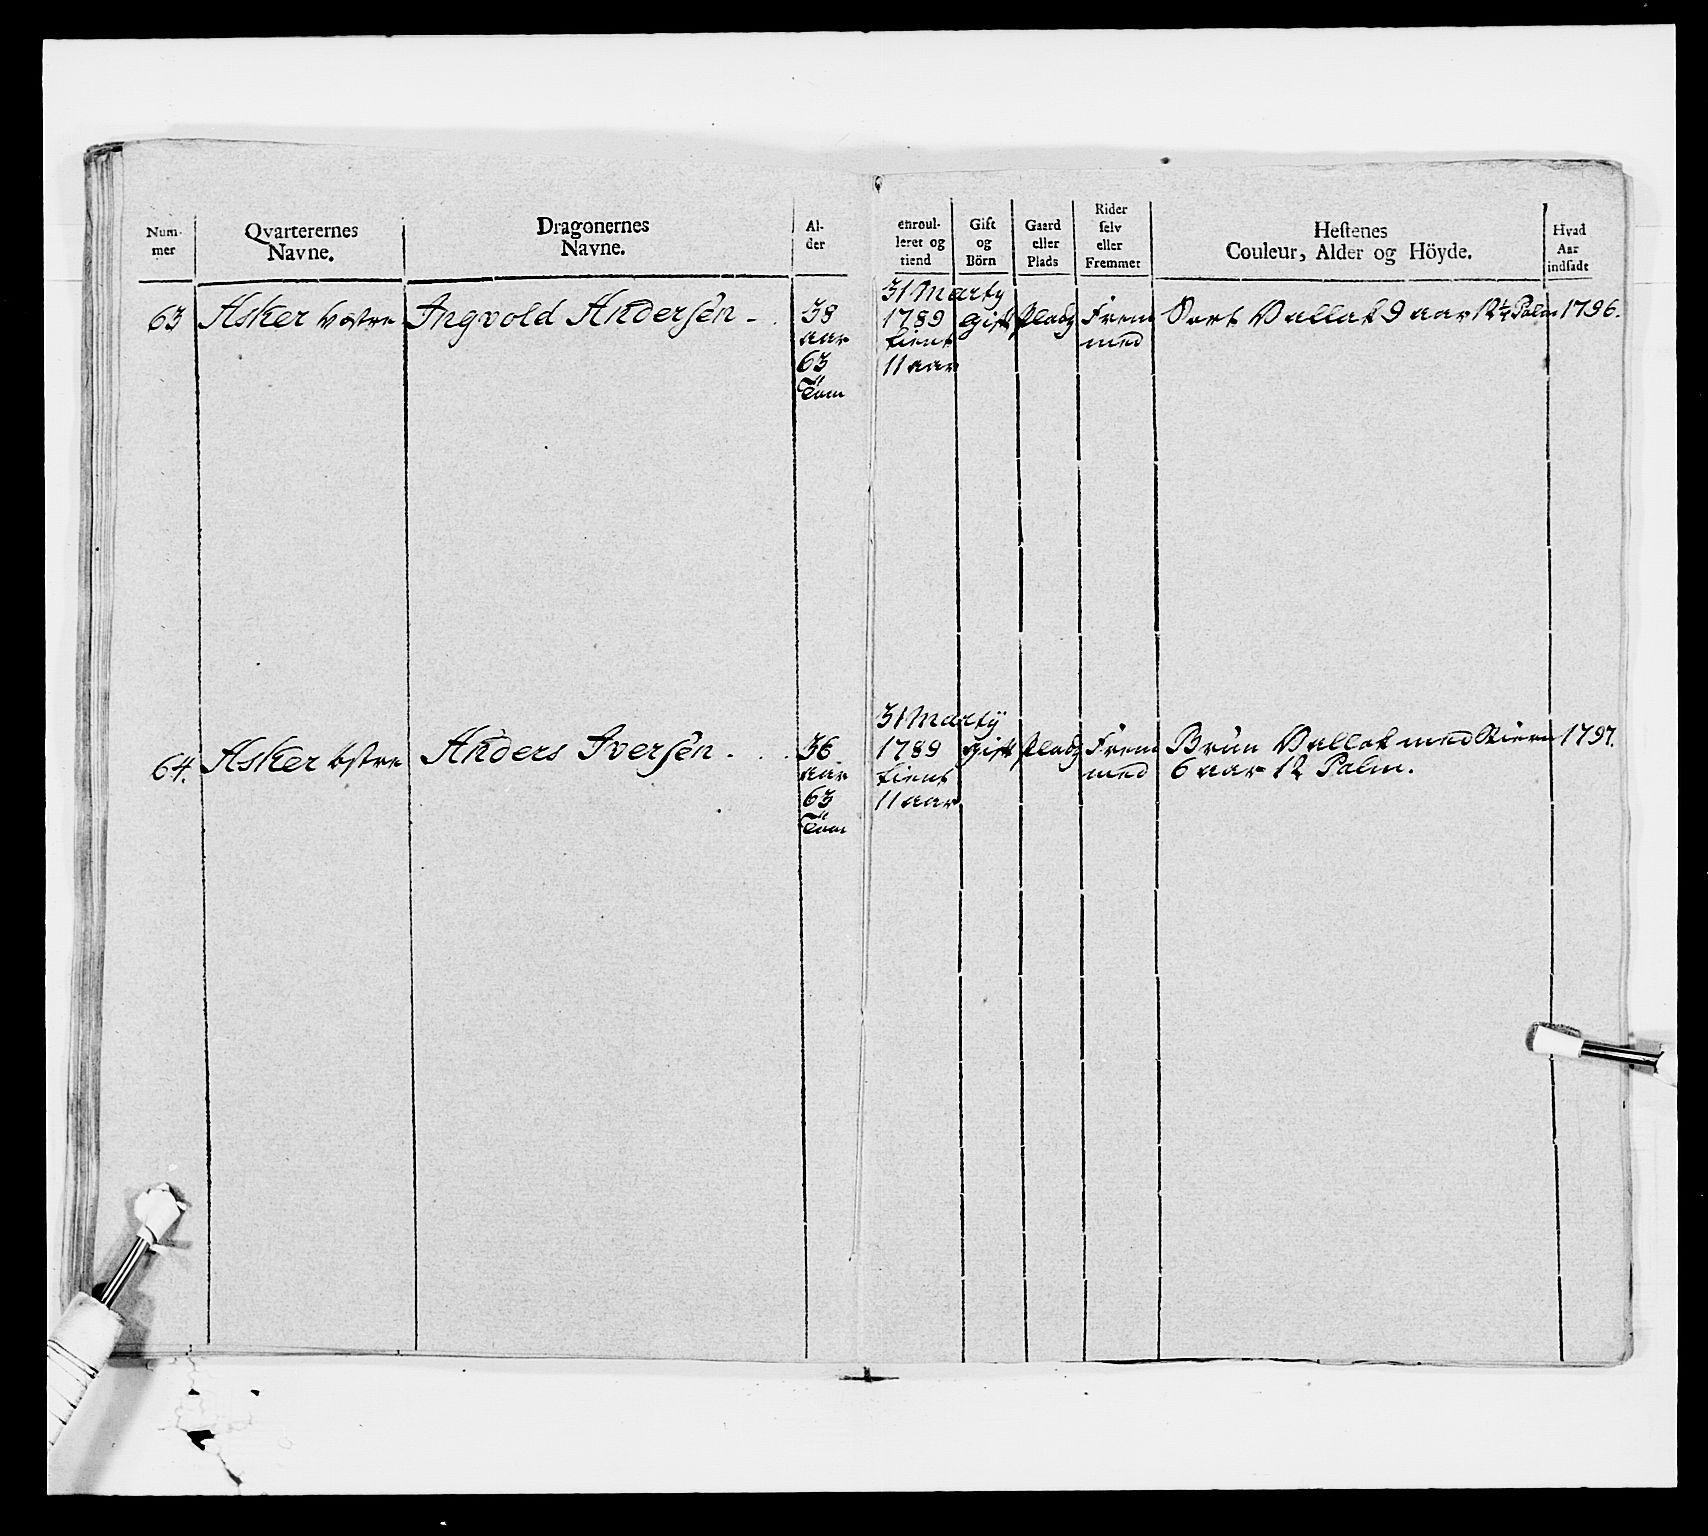 Num-
mer
Qvarterernes
Navne.
Dragonernes
Navne.
Al-
der
enroul-
leret og
tiend
Gift
og
Börn
Gaard
eller
Plads
Rider
selv
eller
Fremmet
Hestenes
Couleur, Alder og Höyde.
Hvad
Aar
indsadt
63
Asker vestre
Ingvold Andersen -
38
aar
63
Tom
31 Marty
1789
tient
11 aar
Gift
Plads
Frem
med
Sort Vallak 9 aar 12¼ Palm
1796.
64.
Asker østre
Anders Iversen -
36
aar
63
Tom
31 Martÿ
1789
tient
11 aar
Gift
Plads
Frem
med
Brun Vallak med Stiern
6 aar 12 Palm.
1797.